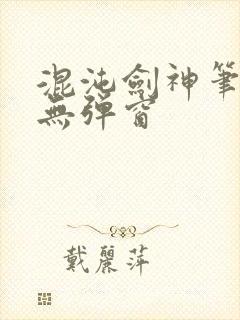 混沌劍神筆
無彈窗
戴麗萍